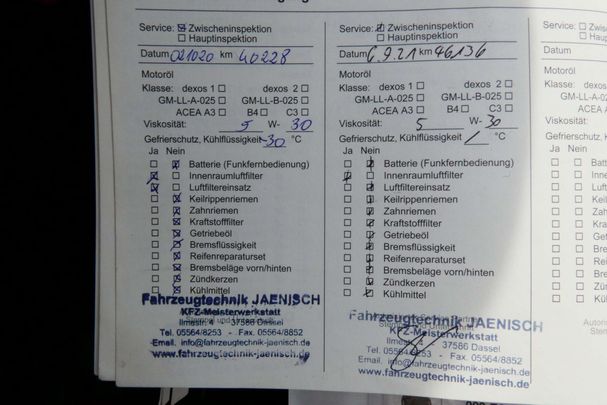 Service: Zwischeninspektion
Hauptinspektion
Datum 021020 km 40228
Motoröl
Klasse: dexos 1 dexos 2
GM-LL-A-025 GM-LL-B-025
ACEA A3 B4 C3
Viskosität: 5 W- 30
Gefrierschutz, Kühlflüssigkeit -30 °C
Ja Nein
Batterie (Funkfernbedienung)
Innenraumluftfilter
Luftfiltereinsatz
Keilrippenriemen
Zahnriemen
Kraftstofffilter
Getriebeöl
Bremsflüssigkeit
Reifenreparaturset
Bremsbeläge vorn/hinten
Zündkerzen
Kühlmittel
Fahrzeugtechnik JAENISCH
KFZ-Meisterwerkstatt
Ilmestr. 4 - 37586 Dassel
Tel. 05564/8253 - Fax. 05564/8852
Email. info@fahrzeugtechnik-jaenisch.de
www.fahrzeugtechnik-jaenisch.de
Service: Zwischeninspektion
Hauptinspektion
Datum 6.9.21 km 46136
Motoröl
Klasse: dexos 1 dexos 2
GM-LL-A-025 GM-LL-B-025
ACEA A3 B4 C3
Viskosität: 5 W- 30
Gefrierschutz, Kühlflüssigkeit °C
Ja Nein
Batterie (Funkfernbedienung)
Innenraumluftfilter
Luftfiltereinsatz
Keilrippenriemen
Zahnriemen
Kraftstofffilter
Getriebeöl
Bremsflüssigkeit
Reifenreparaturset
Bremsbeläge vorn/hinten
Zündkerzen
Kühlmittel
Fahrzeugtechnik JAENISCH
KFZ-Meisterwerkstatt
37586 Dassel
Tel. 05564/8253 - Fax. 05564/8852
Email. info@fahrzeugtechnik-jaenisch.de
www.fahrzeugtechnik-jaenisch.de
Service:
Datum
Motoröl
Klasse:
GM-L
A
Viskosität:
Gefriersch
Ja Nein